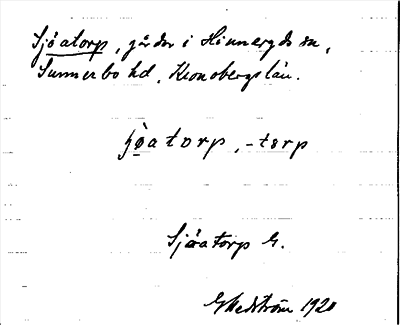 Sjöatorp, gårdar i Hinneryds sn,
Sunnerbo hd, Kronobergs län.
ʃø̀atorp, -tɘrp
Sjöatorp G.
G Hedström 1920